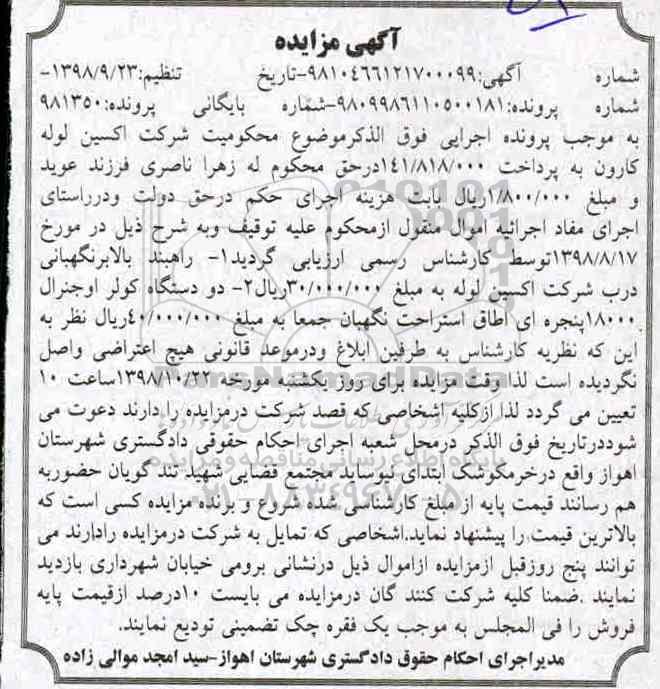 آگهی مزایده
شماره آگهی:۹۸۱۰۴۶۶۱۲۱۷۰۰۰۹۹-تاریخ تنظیم:۱۳۹۸/۹/۲۳-
شماره پرونده:۹۸۰۹۹۸۶۱۱۰۵۰۰۱۸۱-شماره بایگانی پرونده:۹۸۱۳۵۰
به موجب پرونده اجرایی فوق الذکرموضوع محکومیت شرکت اکسین لوله
کارون به پرداخت ۱۴۱/۸۱۸/۰۰۰درحق محکوم له زهرا ناصری فرزند عوید
و مبلغ ۱/۸۰۰/۰۰۰ریال بابت هزینه اجرای حکم درحق دولت ودرراستای
اجرای مفاد اجرائیه اموال منقول ازمحکوم علیه توقیف وبه شرح ذیل در مورخ
۱۳۹۸/۸/۱۷توسط کارشناس رسمی ارزیابی گردید۱- راهبند بالابرنگهبانی
درب شرکت اکسین لوله به مبلغ ۳۰/۰۰۰/۰۰۰ریال۲- دو دستگاه کولر اوجنرال
۱۸۰۰۰پنجره ای اطاق استراحت نگهبان جمعا به مبلغ ۴۰/۰۰۰/۰۰۰ریال نظر به
این که نظریه کارشناس به طرفین ابلاغ ودرموعد قانونی هیچ اعتراضی واصل
نگردیده است لذا وقت مزایده برای روز یکشنبه مورخه ۱۳۹۸/۱۰/۲۲ساعت ۱۰
تعیین می گردد لذا ازکلیه اشخاصی که قصد شرکت درمزایده را دارند دعوت می
شوددرتاریخ فوق الذکر درمحل شعبه اجرای احکام حقوقی دادگستری شهرستان
اهواز واقع درخرمکوشک ابتدای نیوساید مجتمع قضایی شهید تند گویان حضوربه
هم رسانند قیمت پایه از مبلغ کارشناسی شده شروع و برنده مزایده کسی است که
بالاترین قیمت را پیشنهاد نماید.اشخاصی که تمایل به شرکت درمزایده رادارند می
توانند پنج روزقبل ازمزایده ازاموال ذیل درنشانی برومی خیابان شهرداری بازدید
نمایند .ضمنا کلیه شرکت کنند گان درمزایده می بایست ۱۰درصد ازقیمت پایه
فروش را فی المجلس به موجب یک فقره چک تضمینی تودیع نمایند.
مدیراجرای احکام حقوق دادگستری شهرستان اهواز-سید امجد موالی زاده
ParsNamadData
پایگاه اطلاع رسانی مناقصه و مزایده
۰۲۱-۸۸۳۴۹۶۷۰-۵